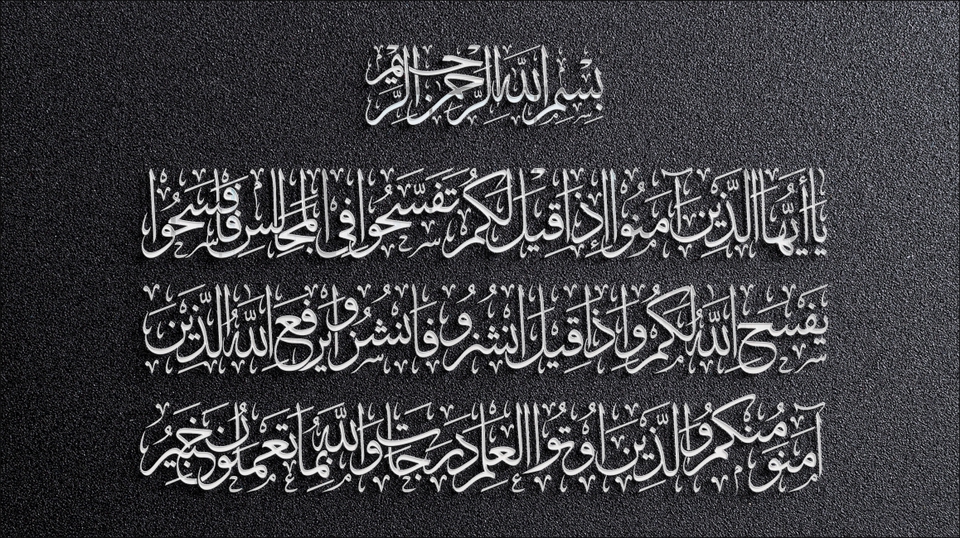 بسم الله الرحمن الرحيم
يا أيها الذين آمنوا إذا قيل لكم تفسحوا في المجالس فافسحوا
يفسح الله لكم وإذا قيل انشزوا فانشزوا يرفع الله الذين
آمنوا منكم والذين اوتوا العلم درجات والله بما تعملون خبير